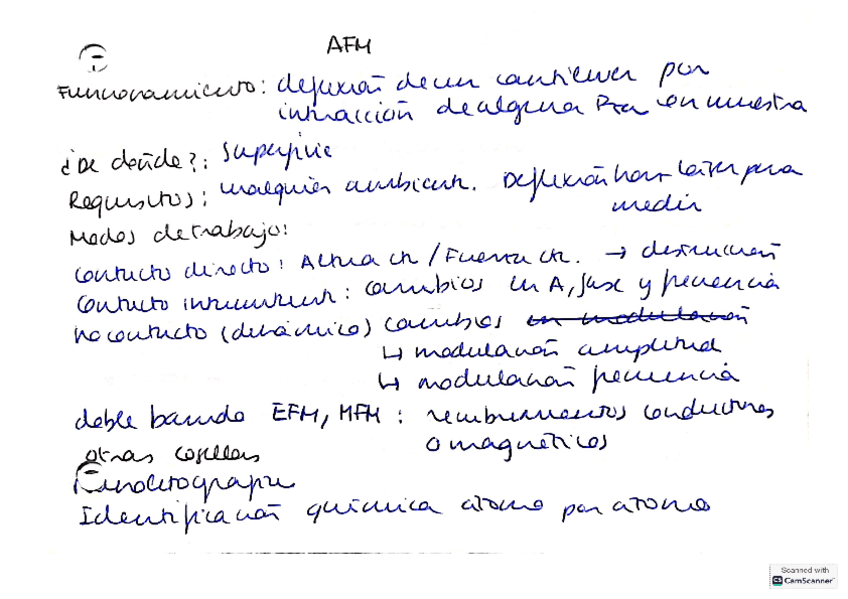 AFM
Funcionamiento: deflexión de un cantilever por
interacción de alguna Fza en muestra
¿De dónde?: Superficie
Requisitos: cualquier ambiente. Deflexión haz láser para
medir
Modos de trabajo:
Contacto directo: Altura cte / Fuerza cte. → destrucción
Contacto intermitente: cambios en A, fase y frecuencia
No contacto (dinámico) cambios en modulación
↳ modulación amplitud
↳ modulación frecuencia
doble barrido EFM, MFM: recubrimientos conductores
o magnéticos
otras cosillas
Nanolitografía
Identificación química átomo por átomo
Scanned with
CS CamScanner